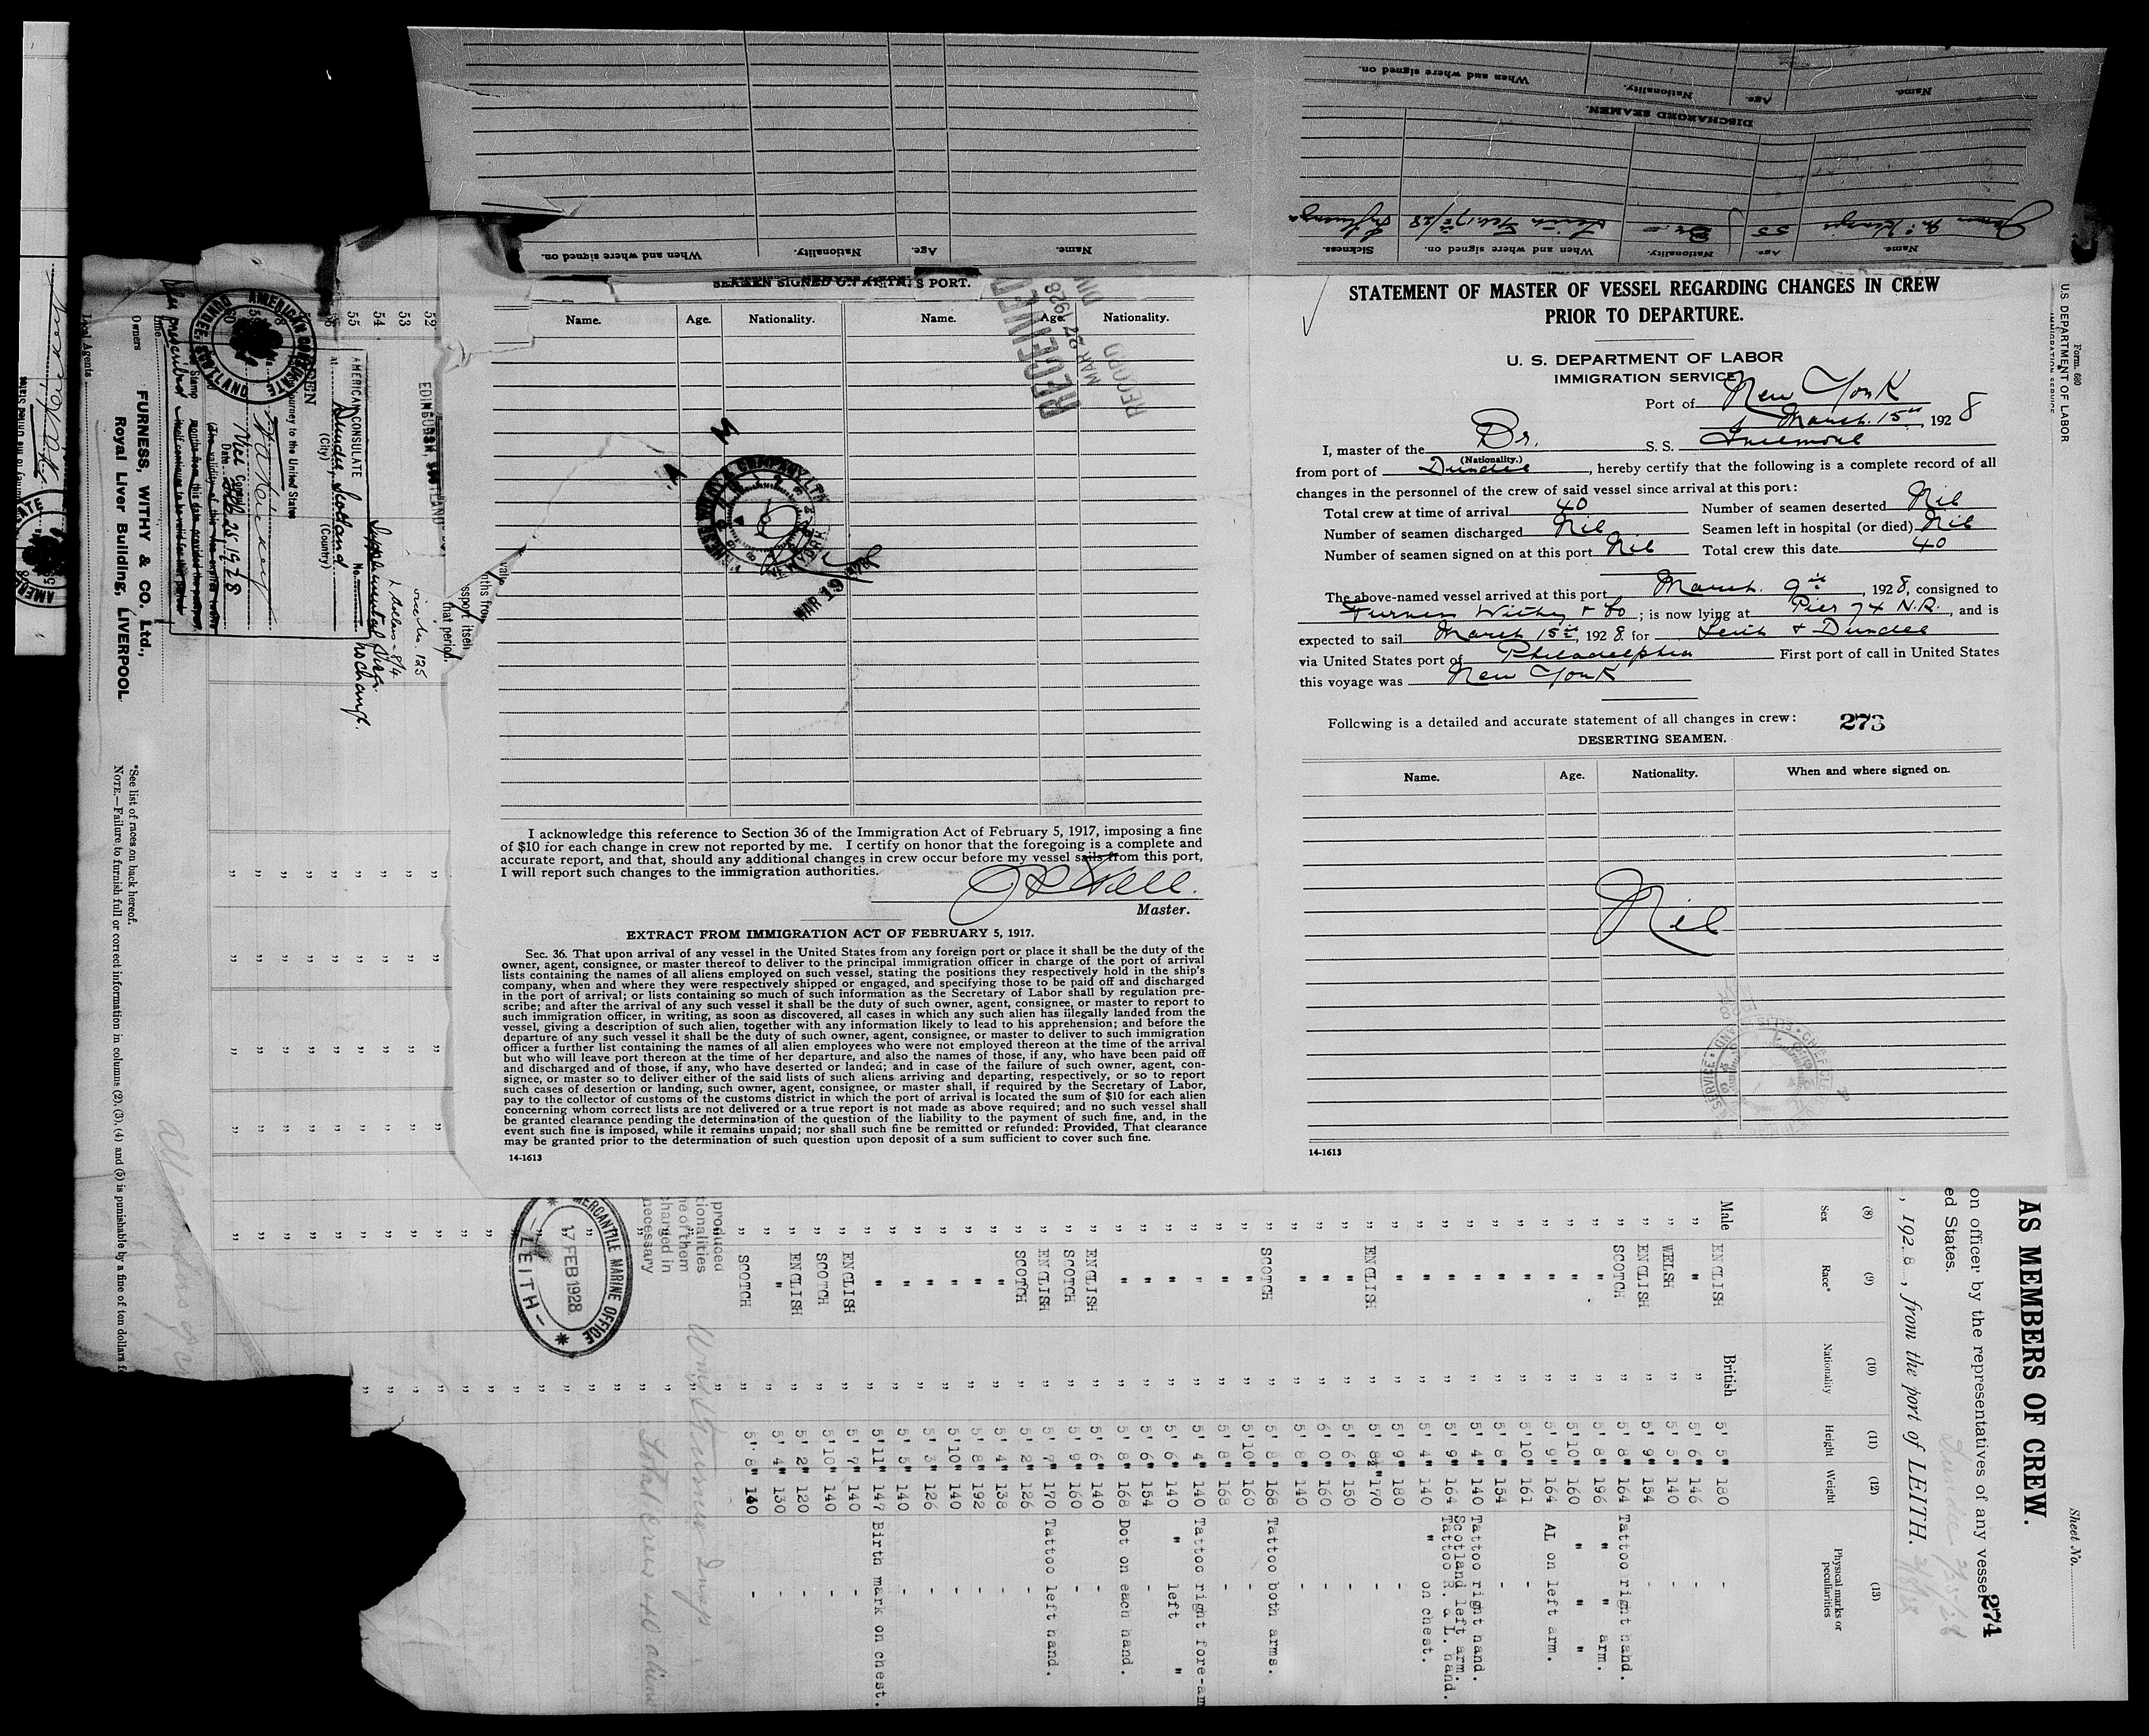 STATEMENT OF MASTER OF VESSEL REGARDING CHANGES IN CREW
PRIOR TO DEPARTURE.
U. S. DEPARTMENT OF LABOR
IMMIGRATION SERVICE
Form 680
U. S. DEPARTMENT OF LABOR
IMMIGRATION SERVICE
Port of New York
March 15th, 1928
I, master of the Br. S. S.
(Nationality.)
from port of Dundee, hereby certify that the following is a complete record of all
changes in the personnel of the crew of said vessel since arrival at this port:
Total crew at time of arrival 40 Number of seamen deserted Nil
Number of seamen discharged Nil Seamen left in hospital (or died) Nil
Number of seamen signed on at this port Nil Total crew this date 40
The above-named vessel arrived at this port March 9th, 1928, consigned to
Furness Withy & Co; is now lying at Pier 74 N.R., and is
expected to sail March 15th, 1928 for Leith & Dundee
via United States port of Philadelphia First port of call in United States
this voyage was New York
Following is a detailed and accurate statement of all changes in crew: 273
DESERTING SEAMEN.
Name. Age. Nationality. When and where signed on.
Nil
14-1613
DISCHARGED SEAMEN.
Name. Age. Nationality. When and where signed on.
Name. Age. Nationality. When and where signed on. Sickness.
55 Br. Leith Feb 17th/28 Influenza
Name. Age. Nationality. When and where signed on.
SEAMEN SIGNED ON AT THIS PORT.
Name. Age. Nationality. Name. Age. Nationality.
RECEIVED
MAR 27 1928
RECORD DIV
A M
NEW YORK
MAR 19 1928
I acknowledge this reference to Section 36 of the Immigration Act of February 5, 1917, imposing a fine
of $10 for each change in crew not reported by me. I certify on honor that the foregoing is a complete and
accurate report, and that, should any additional changes in crew occur before my vessel sails from this port,
I will report such changes to the immigration authorities.
Master.
EXTRACT FROM IMMIGRATION ACT OF FEBRUARY 5, 1917.
Sec. 36. That upon arrival of any vessel in the United States from any foreign port or place it shall be the duty of the
owner, agent, consignee, or master thereof to deliver to the principal immigration officer in charge of the port of arrival
lists containing the names of all aliens employed on such vessel, stating the positions they respectively hold in the ship's
company, when and where they were respectively shipped or engaged, and specifying those to be paid off and discharged
in the port of arrival; or lists containing so much of such information as the Secretary of Labor shall by regulation pre-
scribe; and after the arrival of any such vessel it shall be the duty of such owner, agent, consignee, or master to report to
such immigration officer, in writing, as soon as discovered, all cases in which any such alien has illegally landed from the
vessel, giving a description of such alien, together with any information likely to lead to his apprehension; and before the
departure of any such vessel it shall be the duty of such owner, agent, consignee, or master to deliver to such immigration
officer a further list containing the names of all alien employees who were not employed thereon at the time of the arrival
but who will leave port thereon at the time of her departure, and also the names of those, if any, who have been paid off
and discharged and of those, if any, who have deserted or landed; and in case of the failure of such owner, agent, con-
signee, or master so to deliver either of the said lists of such aliens arriving and departing, respectively, or so to report
such cases of desertion or landing, such owner, agent, consignee, or master shall, if required by the Secretary of Labor,
pay to the collector of customs of the customs district in which the port of arrival is located the sum of $10 for each alien
concerning whom correct lists are not delivered or a true report is not made as above required; and no such vessel shall
be granted clearance pending the determination of the question of the liability to the payment of such fine, and, in the
event such fine is imposed, while it remains unpaid; nor shall such fine be remitted or refunded: Provided, That clearance
may be granted prior to the determination of such question upon deposit of a sum sufficient to cover such fine.
14-1613
Sheet No.
AS MEMBERS OF CREW.
274
on officer by the representatives of any vessel
ed States.
, 1928, from the port of LEITH.
(8) (9) (10) (11) (12) (13)
Sex Race* Nationality Height Weight Physical marks or peculiarities
Male ENGLISH British 5' 5" 180 -
" " " 5' 6" 146 -
" WELSH " 5' 5" 140 -
" ENGLISH " 5' 9" 154 -
" SCOTCH " 5' 8" 164 Tattoo right hand.
" " " 5' 8" 196 " " arm.
" " " 5'10" 160 " " "
" " " 5' 9" 164 AL on left arm.
" " " 5'10" 161 -
" " " 5' 8" 154 -
" " " 5' 4" 140 Tattoo right hand.
Scotland left arm.
" " " 5' 9" 164 Tattoo R. & L. hand.
" " " 5' 4" 140 " on chest.
" " " 5' 9" 180 -
" ENGLISH " 5' 8½" 170 -
" " " 5' 6" 150 -
" " " 6' 0" 160 -
" " " 5' 8" 140 -
" SCOTCH " 5' 8" 168 Tattoo both arms.
" " " 5'10" 160 -
" " " 5' 8" 168 -
" " " 5' 4" 140 Tattoo right fore-am
" " " 5' 6" 140 " left "
" " " 5' 6" 154 -
" " " 5' 8" 168 Dot on each hand.
" ENGLISH " 5' 6" 140 -
" SCOTCH " 5' 9" 160 -
" ENGLISH " 5' 7" 170 Tattoo left hand.
" SCOTCH " 5' 2" 126 -
" " " 5' 4" 138 -
" " " 5' 8" 192 -
" " " 5'10" 140 -
" " " 5' 3" 126 -
" " " 5' 5" 140 -
" " " 5'11" 147 Birth mark on chest.
" ENGLISH " 5' 7" 140 -
" SCOTCH " 5'10" 140 -
" ENGLISH " 5' 2" 120 -
" " " 5' 4" 130 -
" SCOTCH " 5' 8" 140 -
produced
tionalities
ne of them
hanged in
necessary
MERCANTILE MARINE OFFICE
17 FEB 1928
LEITH
Total Crew
52
53
54
55
56
EDINBURGH, SCOTLAND
vice No. 125
2 dollars - 8/4
Supplemental visa
no change.
AMERICAN CONSULATE
No.
at Dundee, Scotland
(City) (Country)
SEEN
journey to the United States
Vice Consul
Date Feb 25 1928
AMERICAN CONSULATE
DUNDEE, SCOTLAND
Stamp
Line
Owners
FURNESS, WITHY & CO. Ltd.,
Royal Liver Building, LIVERPOOL
Local Agents
*See list of races on back hereof.
NOTE.—Failure to furnish full or correct information in columns (2), (3), (4) and (5) is punishable by a fine of ten dollars f
nths from
ssport itself
that period.